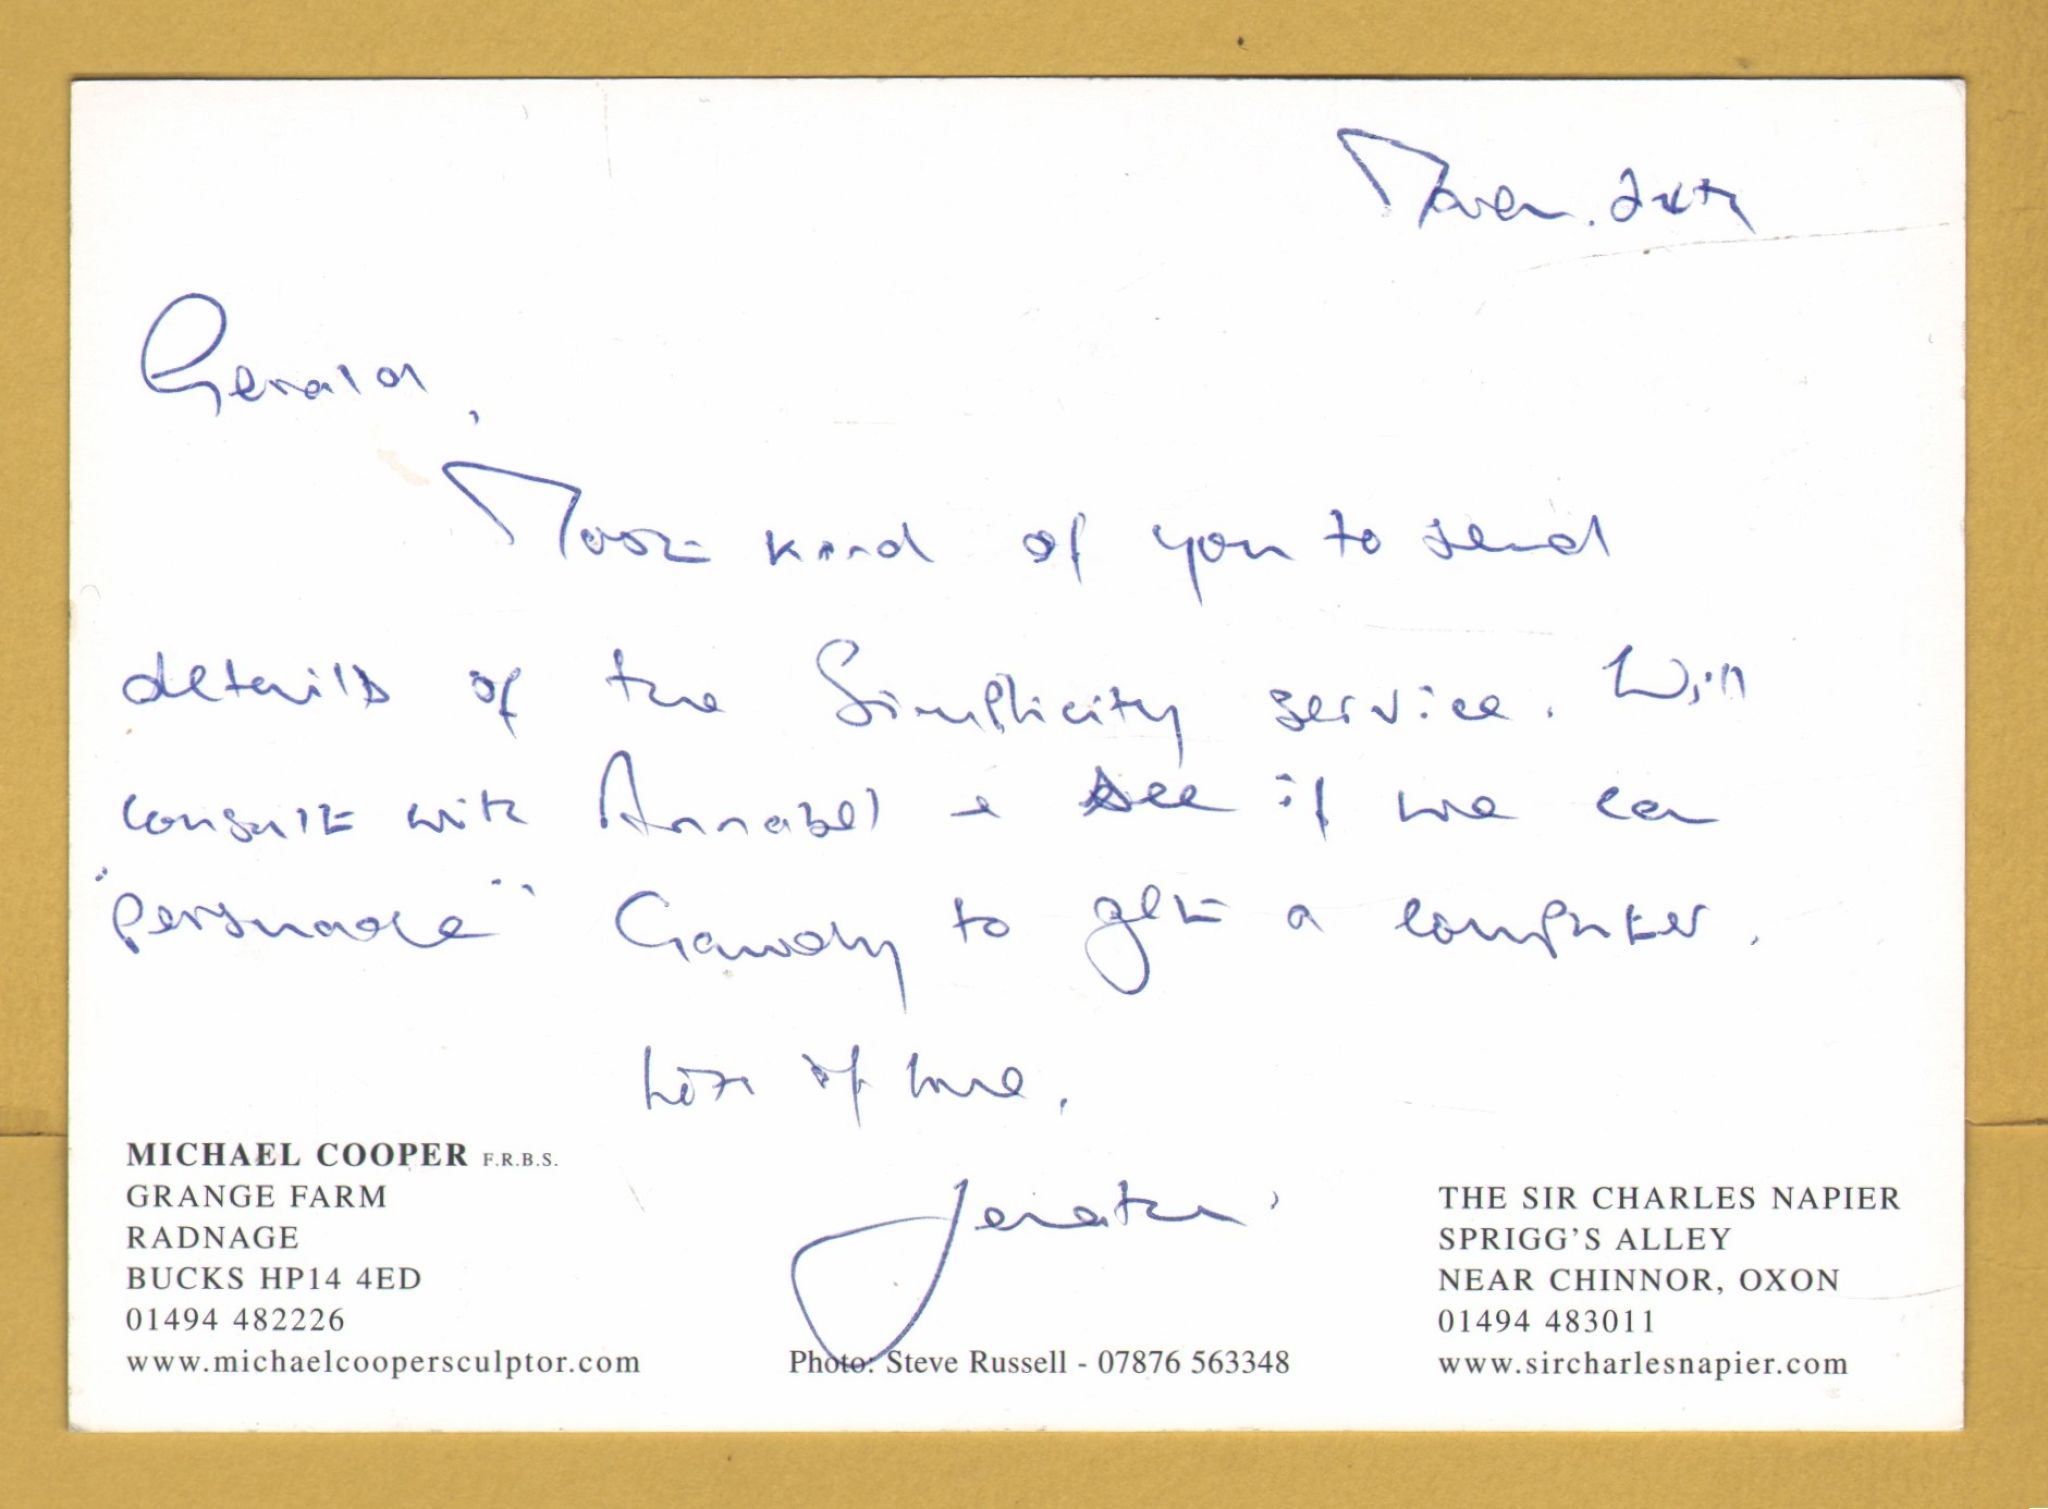 March 24th
Gerald,
Most kind of you to send
details of the Simplicity service. Will
consult with Annabel & see if we can
"persuade" to get a computer.
Lots of love,
MICHAEL COOPER F.R.B.S.
GRANGE FARM
RADNAGE
BUCKS HP14 4ED
01494 482226
www.michaelcoopersculptor.com
Photo: Steve Russell - 07876 563348
THE SIR CHARLES NAPIER
SPRIGG'S ALLEY
NEAR CHINNOR, OXON
01494 483011
www.sircharlesnapier.com